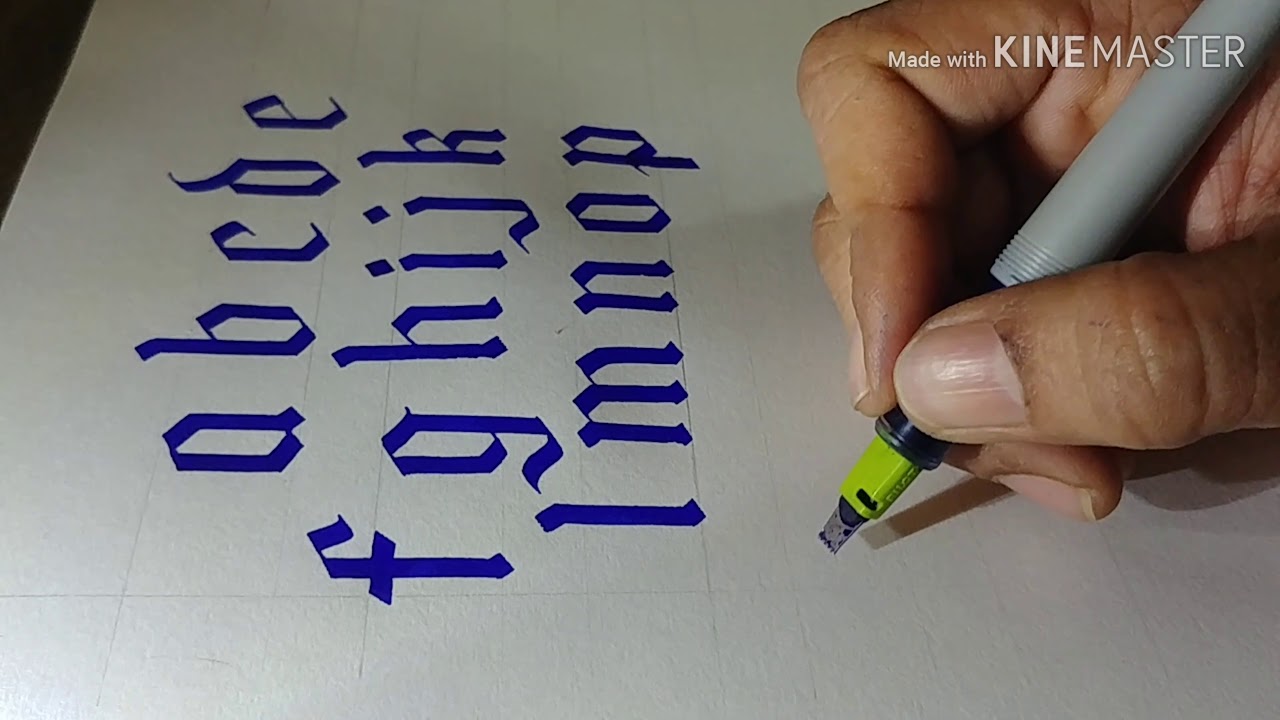 Made with KINEMASTER
a b c d e
f g h i j k
l m n o p